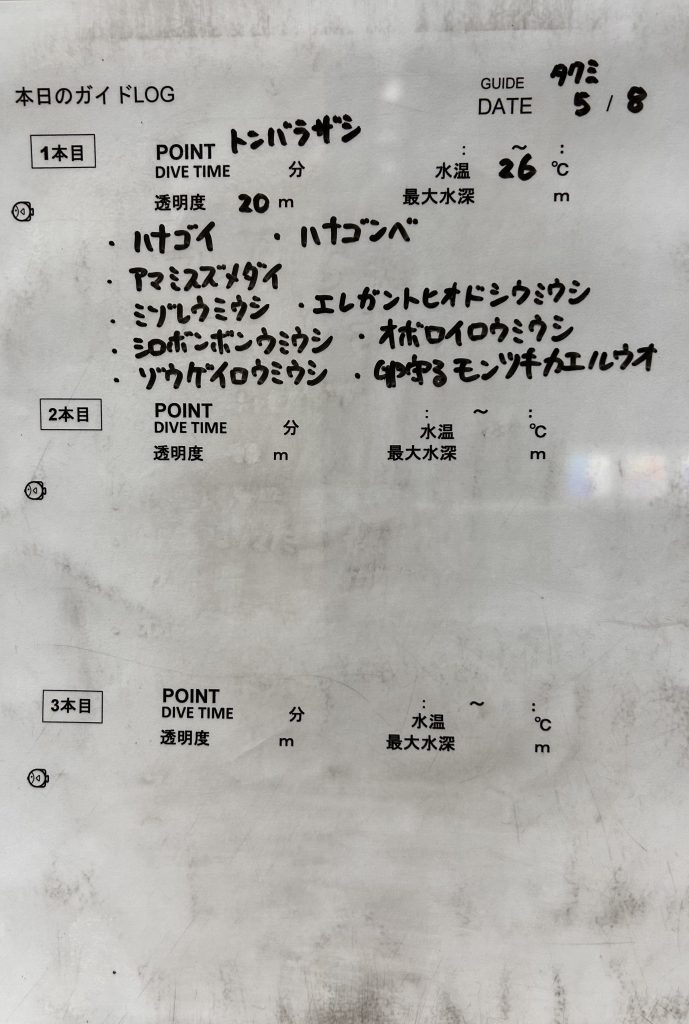 本日のガイドLOG
GUIDE タクミ
DATE 5 / 8
1本目
POINT トンバラザシ : ～ :
DIVE TIME 分 水温 26 ℃
透明度 20 m 最大水深 m
・ハナゴイ ・ハナゴンベ
・アマミスズメダイ
・ミゾレウミウシ ・エレガントヒオドシウミウシ
・シロボンボンウミウシ ・オボロイロウミウシ
・ゾウゲイロウミウシ ・卵守るモンツキカエルウオ
2本目
POINT : ～ :
DIVE TIME 分 水温 ℃
透明度 m 最大水深 m
3本目
POINT : ～ :
DIVE TIME 分 水温 ℃
透明度 m 最大水深 m